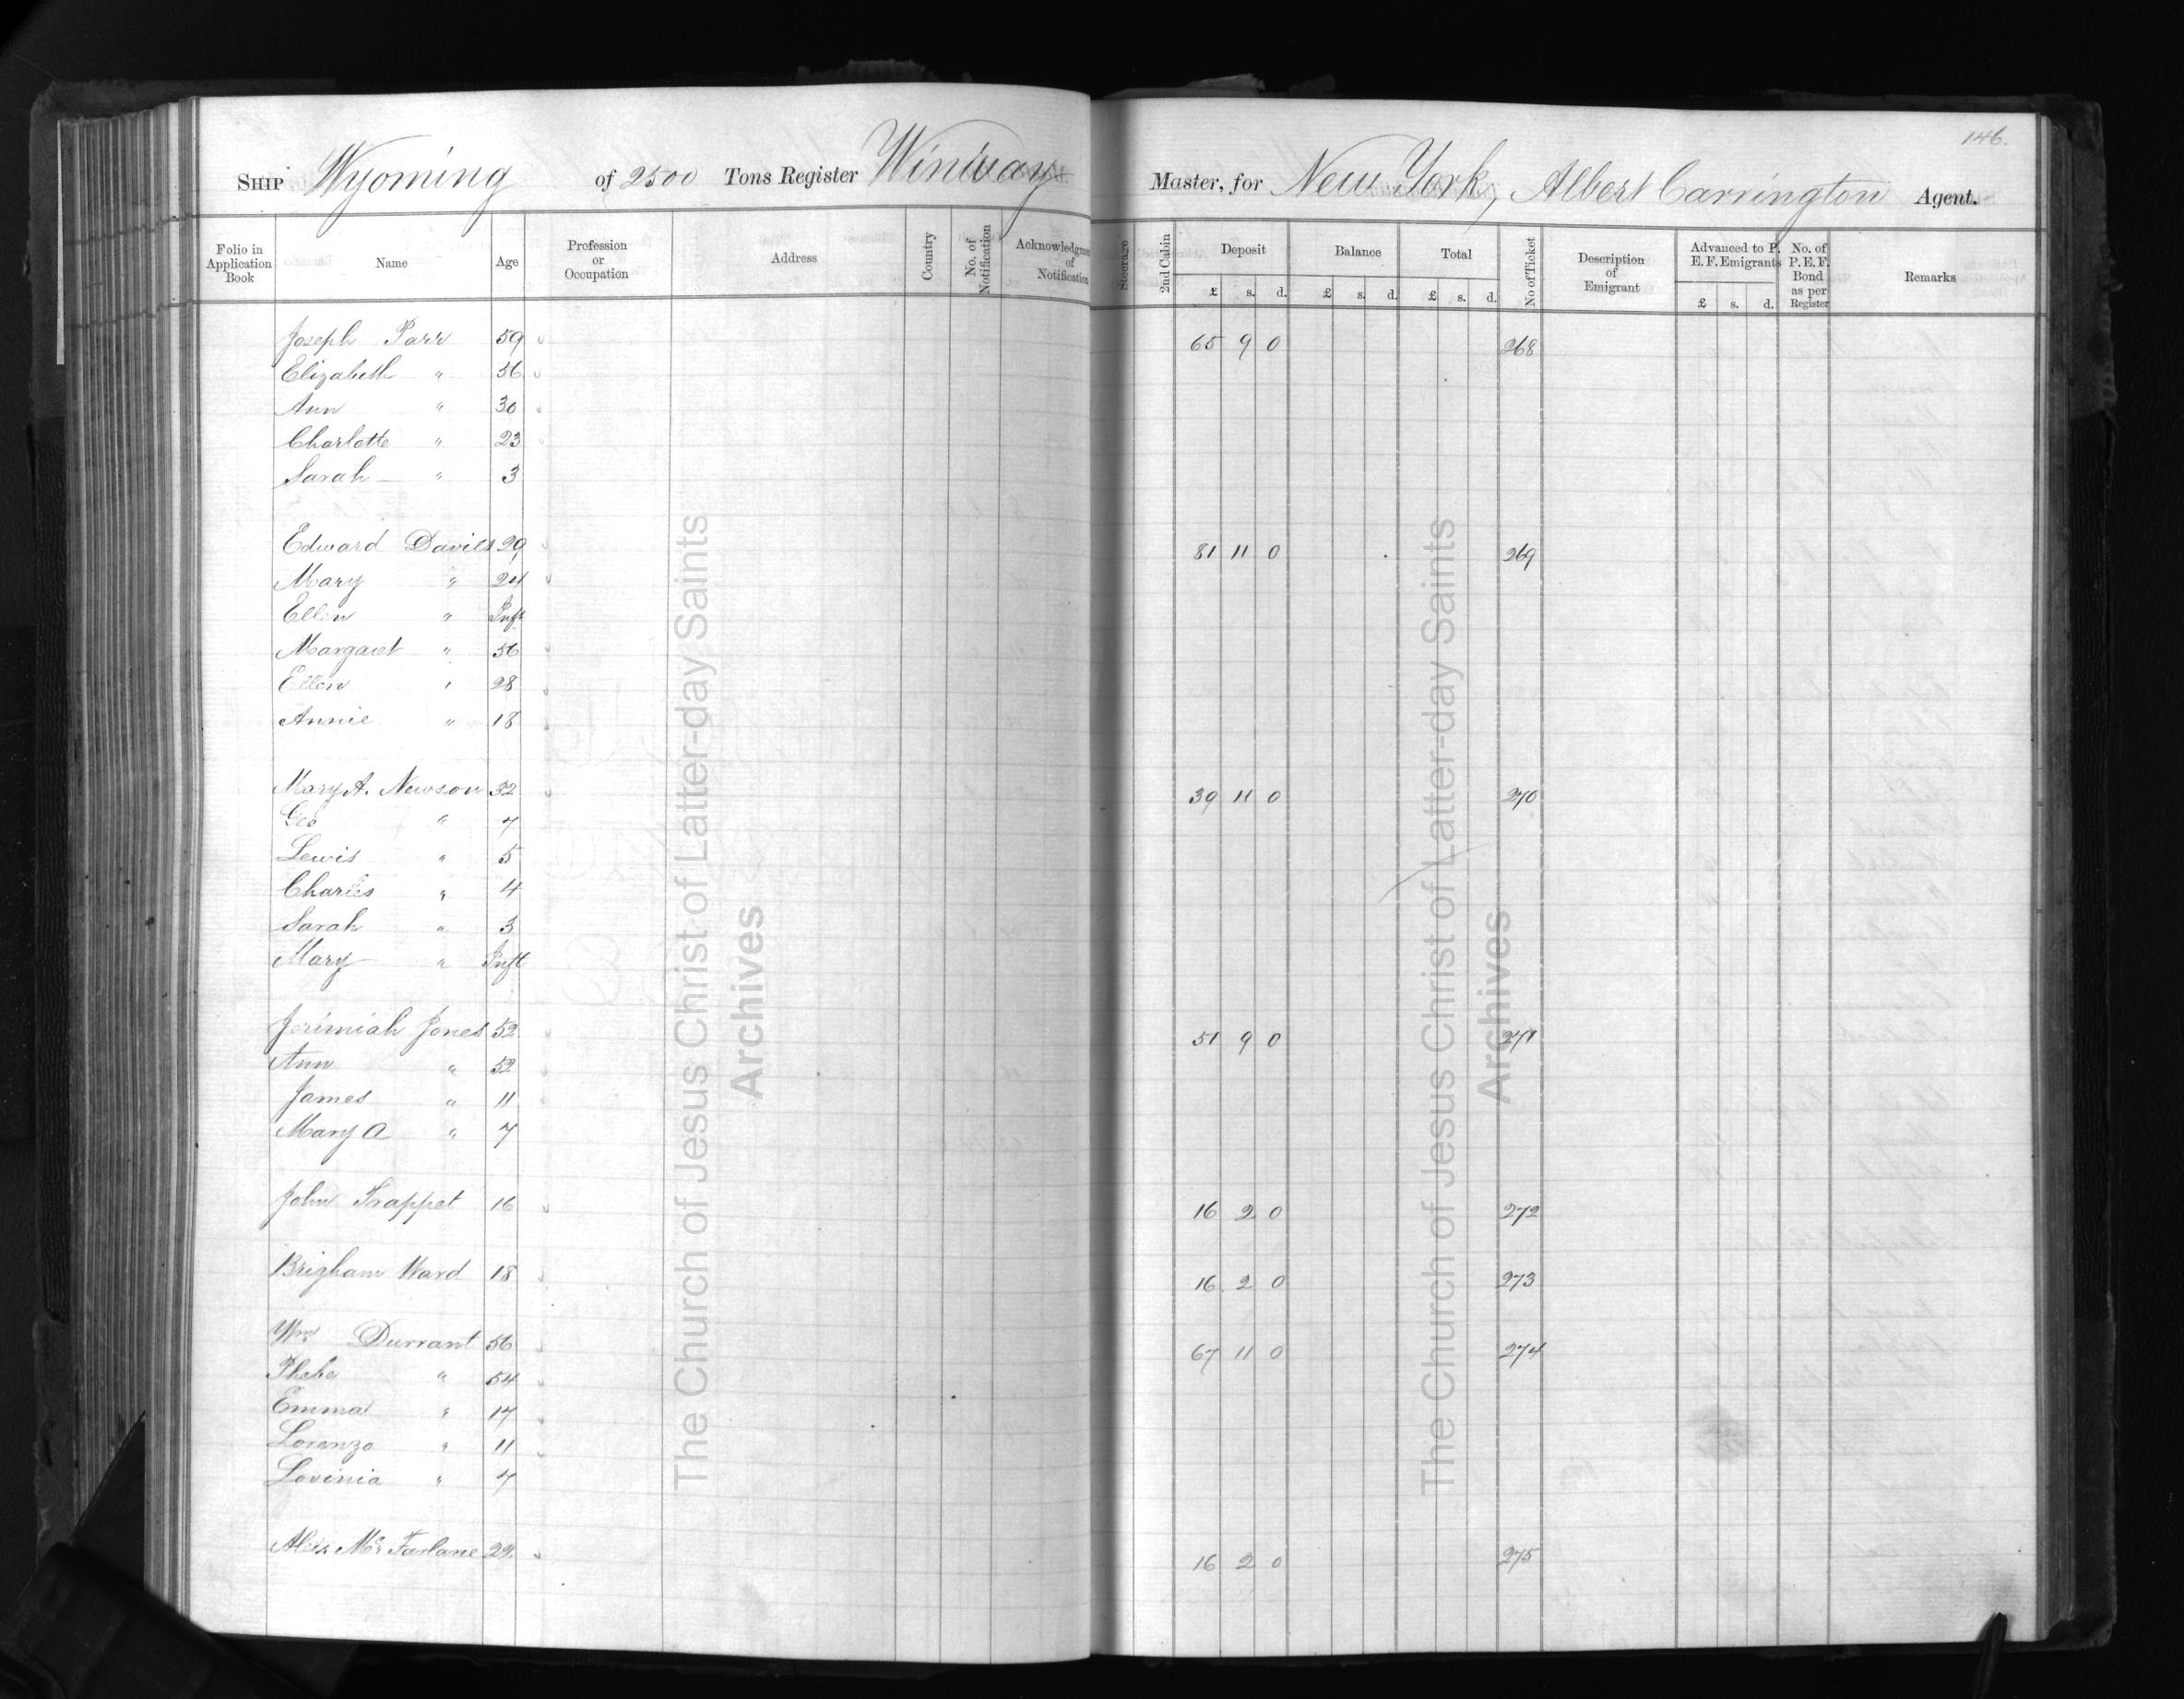 146.
SHIP Wyoming of 2500 Tons Register Winivay Master, for New York, Albert Carrington Agent.
Folio in Application Book Name Age Profession or Occupation Address Country No. of Notification Acknowledgment of Notification Steerage 2nd Cabin Deposit Balance Total No of Ticket Description of Emigrant Advanced to P. E. F. Emigrants No. of P. E. F. Bond as per Register Remarks
£ s. d. £ s. d. £ s. d. £ s. d.
Joseph Parr 59 65 9 0 268
Elizabeth " 56
Ann " 30
Charlotte " 23
Sarah " 3
Edward Davies 29 81 11 0 269
Mary " 24
Ellen " Inft
Margaret " 56
Ellen " 28
Annie " 18
Mary A. Newson 32 39 11 0 270
Geo " 7
Lewis " 5
Charles " 4
Sarah " 3
Mary " Inft
Jerimiah Jones 52 51 9 0 271
Ann " 52
James " 11
Mary A " 7
John Trappet 16 16 2 0 272
Brigham Ward 18 16 2 0 273
Wm Durrant 56 67 11 0 274
Phebe " 54
Emma " 17
Lorenzo " 11
Lovinia " 7
Alex McFarlane 22 16 2 0 275
The Church of Jesus Christ of Latter-day Saints
Archives
The Church of Jesus Christ of Latter-day Saints
Archives